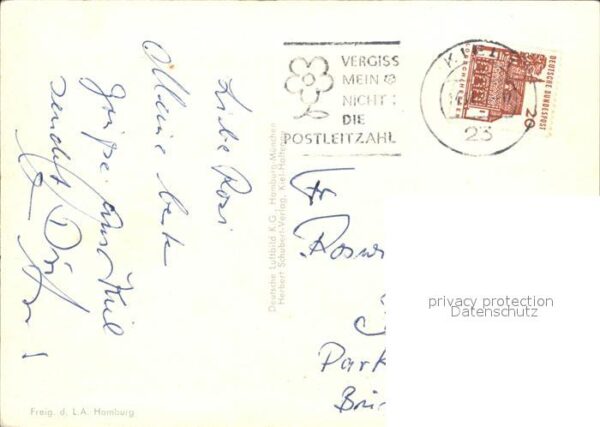 VERGISS
MEIN
NICHT :
DIE
POSTLEITZAHL
KIEL
23
DEUTSCHE BUNDESPOST
20
Liebe Rosi
Meine beste
Grüße aus Kiel
sendet Dir
Deutsche Luftbild K.G., Hamburg-München
Herbert Schubert-Verlag, Kiel-Holtenau
Fr
Park
privacy protection
Datenschutz
Freig. d. L.A. Hamburg